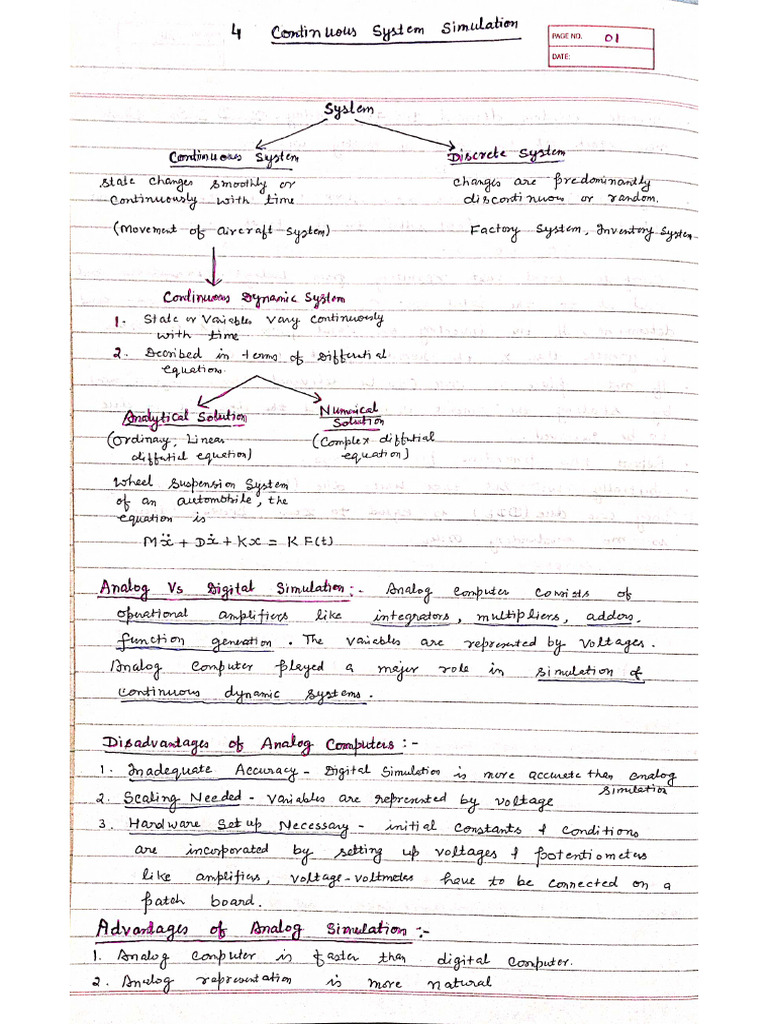 4 Continuous System Simulation
PAGE NO. 01
DATE:
System
Continuous System
Discrete System
State changes smoothly or
Continuously with time
changes are predominantly
discontinuous or random.
(Movement of aircraft system)
Factory System, Inventory System
Continuous Dynamic System
1. State or Variables vary continuously
with time
2. Decribed in terms of Diffential
equations.
Analytical Solution
Numerical
Solution
(Ordinary, Linear
diffatial equation)
(Complex diffatial
equation)
Wheel Suspension System
of an automobile, the
equation is
Mẍ + Dẋ + Kx = K F(t)
Analog Vs Digital Simulation:- Analog Computer consists of
operational amplifiers like integrators, multipliers, adders,
function generation. The variables are represented by voltages.
Analog Computer played a major role in simulation of
continuous dynamic systems.
Disadvantages of Analog Computers:-
1. Inadequate Accuracy - Digital Simulation is more accurate than analog
simulation
2. Scaling Needed - variables are represented by voltage
3. Hardware Set up Necessary - initial constants & conditions
are incorporated by setting up voltages & potentiometers
like amplifiers, voltage-voltmeter have to be connected on a
patch board.
Advantages of Analog Simulation:-
1. Analog Computer is faster than digital computer.
2. Analog representation is more natural